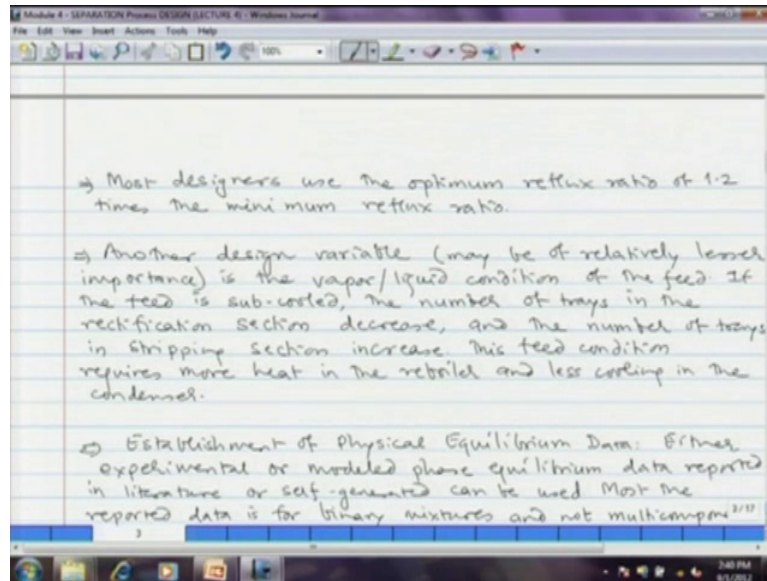 Module 4 - SEPARATION Process DESIGN (LECTURE 4) - Windows Journal
File Edit View Insert Actions Tools Help
100%
⇒ Most designers use the optimum reflux ratio of 1.2
times the minimum reflux ratio.
⇒ Another design variable (may be of relatively lesser
importance) is the vapor/liquid condition of the feed. If
the feed is sub-cooled, the number of trays in the
rectification section decrease, and the number of trays
in stripping section increase. This feed condition
requires more heat in the reboiler and less cooling in the
condenser.
⇒ Establishment of Physical Equilibrium Data: Either
experimental or modeled phase equilibrium data reported
in literature or self-generated can be used Most the
reported data is for binary mixtures and not multicompon
2/17
3
2:40 PM
8/1/2012